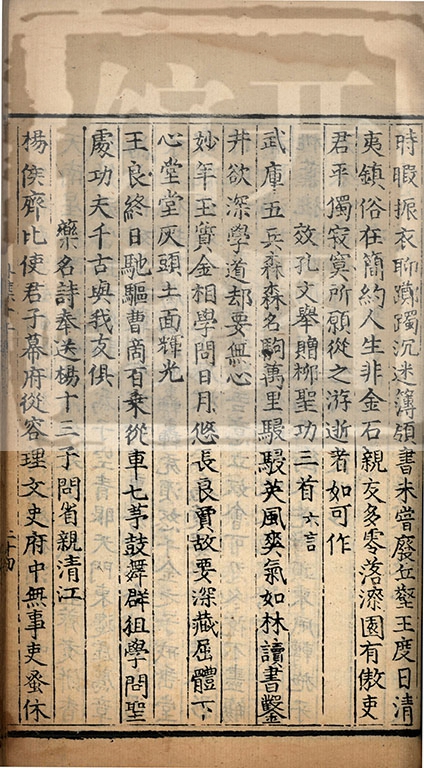 時暇振衣聊躑躅沉迷簿領書未嘗廢丘壑王度日清
夷鎮俗在簡約人生非金石親友多零落漆園有傲吏
君平獨寂寞所願從之游逝者如可作
效孔文舉贈柳聖功三首六言
武庫五兵森森名駒萬里駸駸英風爽氣如林讀書鑿
井欲深學道却要無心
妙年玉質金相學問日月悠長良賈故要深藏屈體下
心堂堂灰頭土面輝光
王良終日馳驅曹商百乗從車七茅鼓舞群狙學問聖
處功夫千古與我友俱
藥名詩奉送楊十三子問省親清江
楊侯齊比使君子幕府從容理文史府中無事吏蚕休
二十四